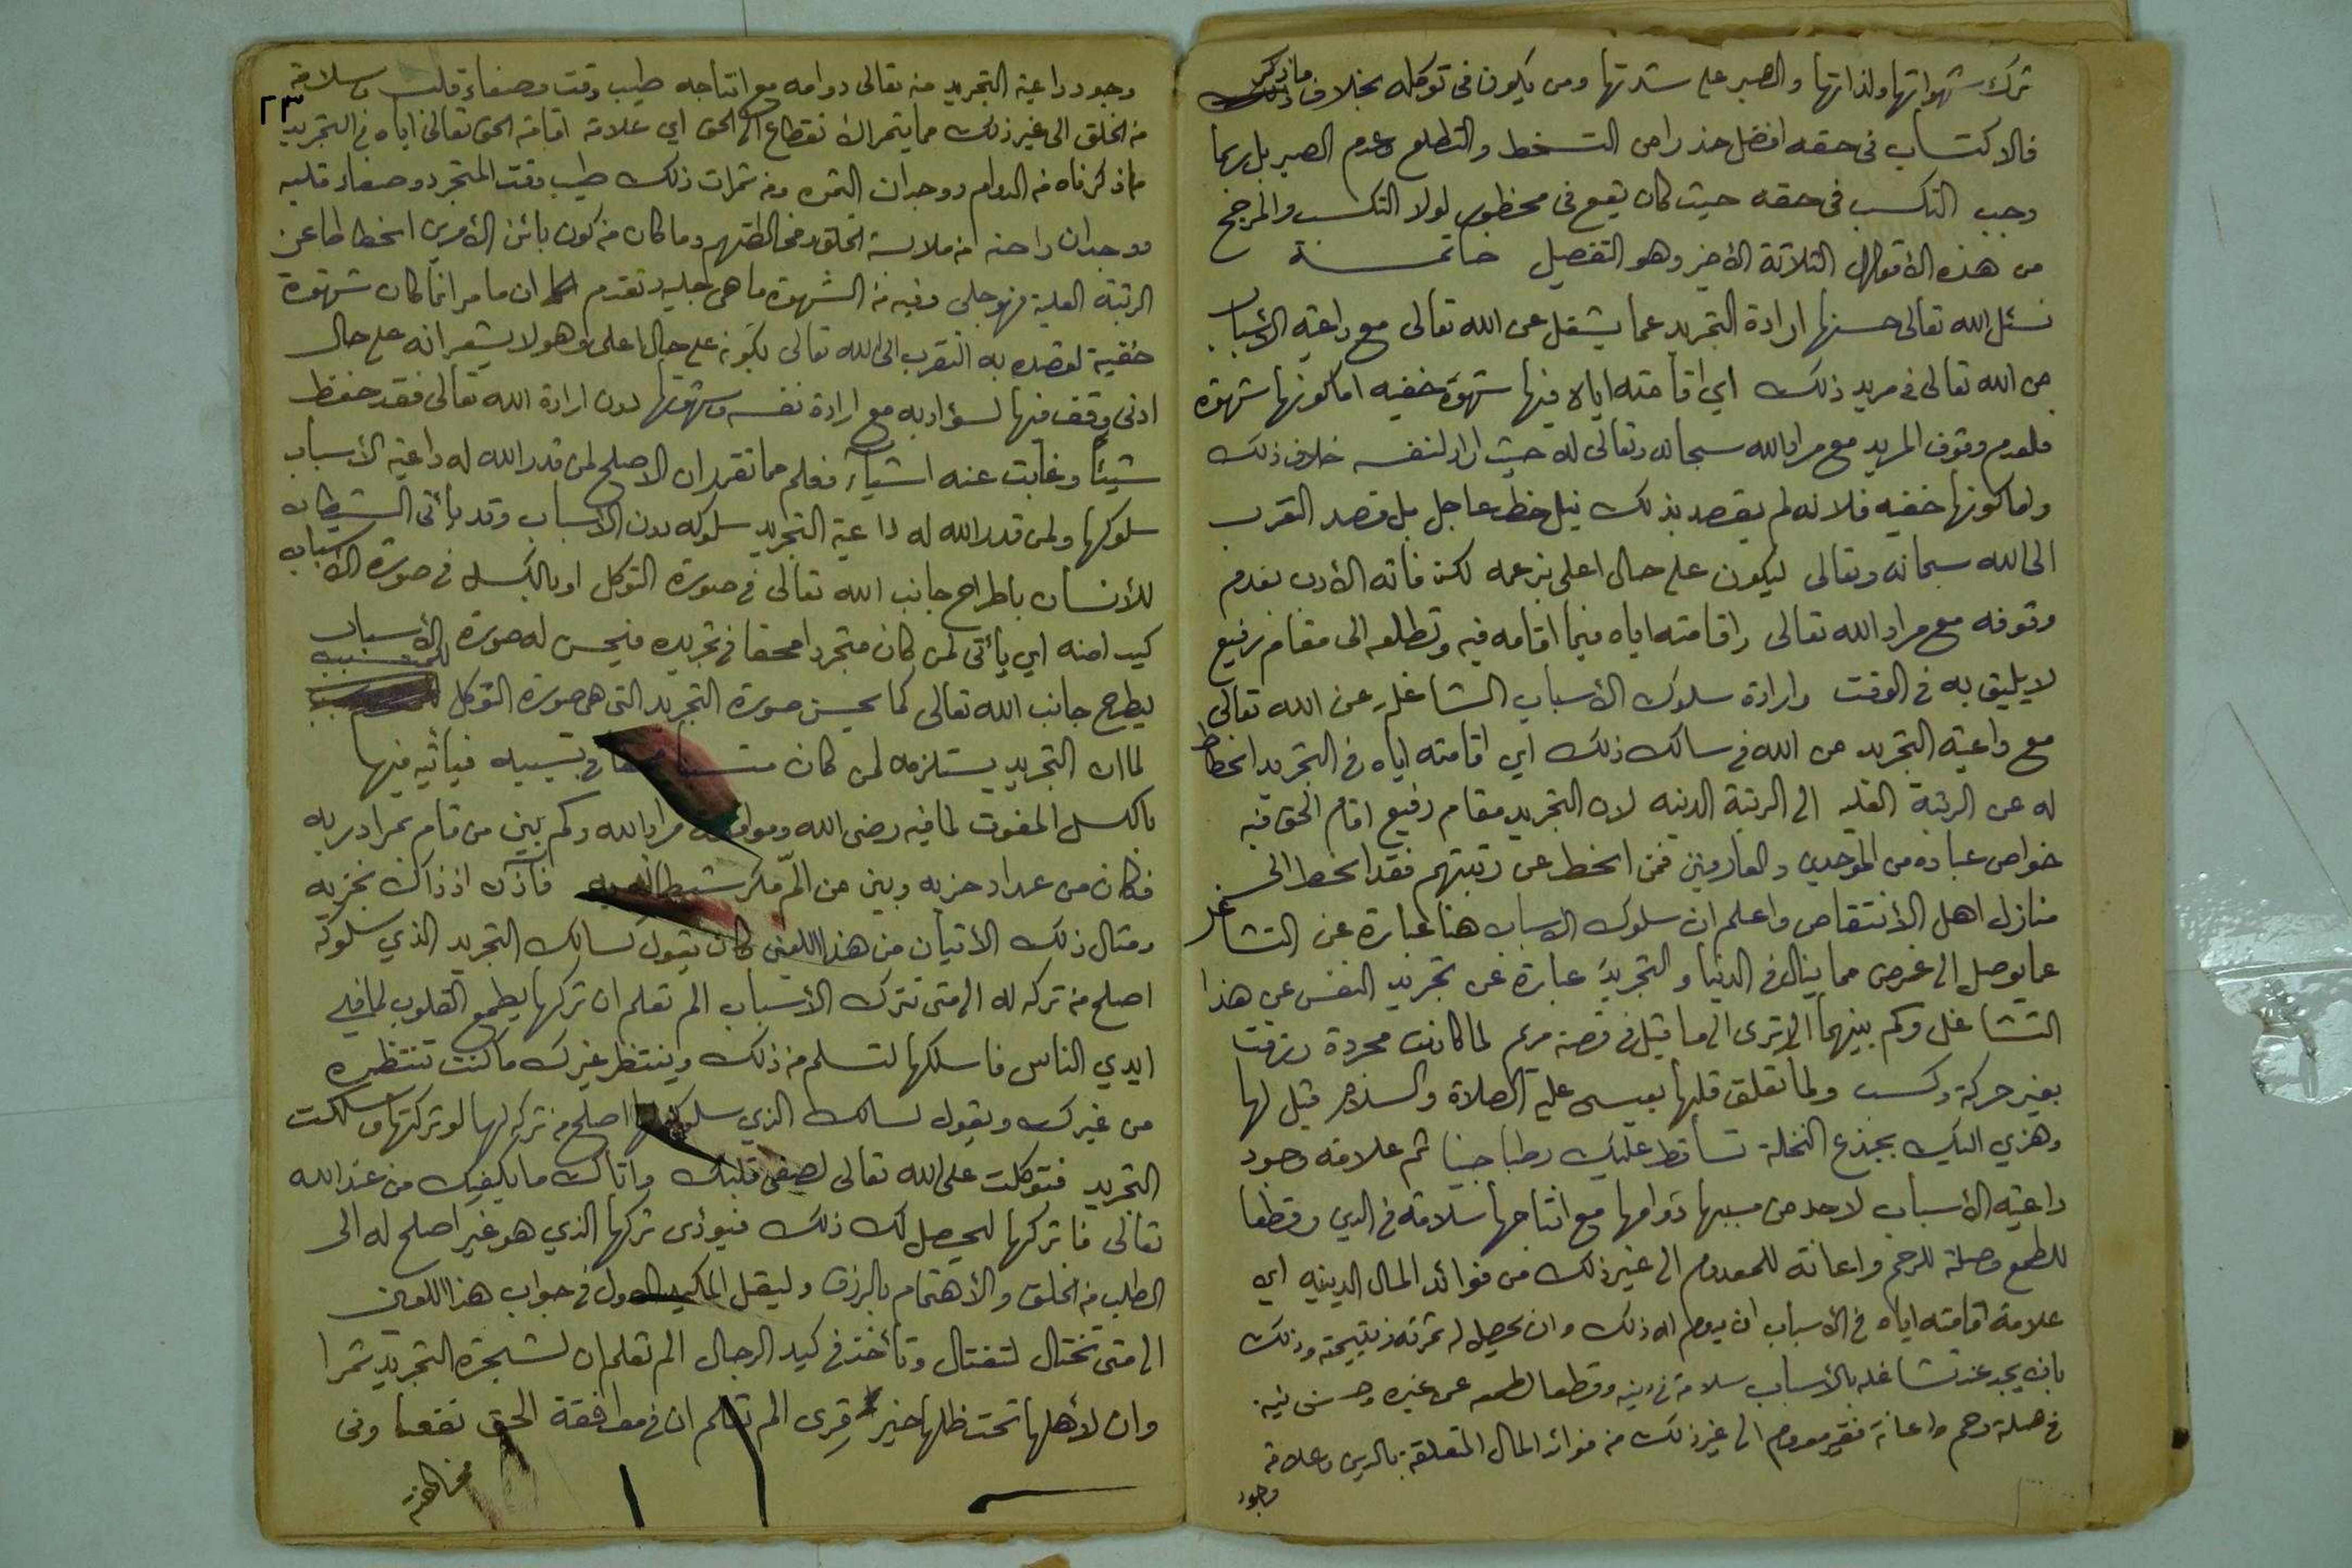 ترك شهواتها ولذاتها والصبر على شدتها ومن يكون في توكله بخلاف ما ذكر
فالاكتساب في حقه افضل حذرا من التسخط والتطلع وعدم الصبر بل ربما
وجب التكسب في حقه حيث كان يقع في محظور لولا التكسب والمرجح
من هذه الأقوال الثلاثة الأخير وهو التفصيل خاتمة
نسئل الله تعالى حسنها ارادة التجريد عما يشغل عن الله تعالى مع داعية الأسباب
من الله تعالى في مريد ذلك اي اقامته اياه فيها شهوة خفيه اما كونها شهوة
فلعدم وقوف المريد مع مراد الله سبحانه وتعالى له حيث اراد لنفسه خلاف ذلك
واما كونها خفيه فلانه لم يقصد بذلك نيل حظ عاجل بل قصد التقرب
الى الله سبحانه وتعالى ليكون على حال اعلى بزعمه لكنه فاته الأدب بعدم
وقوفه مع مراد الله تعالى واقامته اياه فيما اقامه فيه وتطلعه الى مقام رفيع
لا يليق به في الوقت وارادة سلوك الأسباب الشاغله عن الله تعالى
مع داعية التجريد من الله في سالك ذلك اي اقامته اياه في التجريد انحطاط
له عن الرتبة العليه الى الرتبة الدنيه لان التجريد مقام رفيع اقام الحق فيه
خواص عباده من الموحدين والعارفين فمن انحط عن رتبتهم فقد انحط الى
منازل اهل الأنتقاص واعلم ان سلوك الاسباب هنا عبارة عن التشاغل
عما يوصل الى غرض مما ينال في الدنيا والتجريد عبارة عن تجريد النفس عن هذا
التشاغل وكم بينهما الا ترى الى ما قيل في قصة مريم لما كانت مجردة رزقت
بغير حركة وكسب ولما تعلق قلبها بعيسى عليه الصلاة والسلام قيل لها
وهزي اليك بجذع النخلة تساقط عليك رطبا جنيا ثم علامة وجود
داعية الأسباب لاحد من مسببها دوامها مع انتاجها سلامة في الدين وقطعا
للطمع وصلة للرحم واعانة للمعدوم الى غير ذلك من فوائد المال الدينيه اي
علامة اقامته اياه في الأسباب ان يدوم له ذلك وان يحصل له ثمرته ونتيجته وذلك
بان يجد عند تشاغله بالأسباب سلامة في دينه وقطعا لطمعه عن غيره وحسن نية
في صلة رحم واعانة فقير معدوم الى غير ذلك من فوائد المال المتعلقة بالدين وعلامة
وجود
٢٣
وجود داعية التجريد منه تعالى دوامه مع انتاجه طيب وقت وصفاء قلب وسلامة
من الخلق الى غير ذلك مما يثمر الانقطاع الى الحق اي علامة اقامة الحق تعالى اياه في التجريد
ما ذكرناه من الدوام ووجدان الثمره ومن ثمرات ذلك طيب وقت المتجرد وصفاء قلبه
ووجدان راحته من ملابسة الخلق ومخالطتهم وما كان من كون باثن الأمرين انحطاطا عن
الرتبة العلية فهو جلى وفيه من الشهوة ما هي جليه وتقدم ان ما مر انما كان شهوة
خفية لقصده به التقرب الى الله تعالى بكونه على حال اعلى وهو لا يشعر انه على حال
ادنى وقف فيها لسؤ ادبه مع ارادة نفسه وشهوتها دون ارادة الله تعالى فقد حفظ
شيئا وغابت عنه اشياء فعلم مما تقرر ان الاصلح لمن قدر الله له داعية الأسباب
سلوكها ولمن قدر الله له داعية التجريد سلوكه دون الأسباب وقد يأتي الشيطان
للأنسان باطراح جانب الله تعالى في صورة التوكل او بالكسل في صورة الأسباب
كيدا منه اي يأتي لمن كان متجردا محقا في تجريده فيحسن له صورة الأسباب
ليطرح جانب الله تعالى كما يحسن صورة التجريد التي هي صورة التوكل للمتسبب
لما ان التجريد يستلزمه لمن كان في تسببه فيأتيه فيها
بالكسل المفوت لما فيه رضى الله مراد الله وكم بين من قام بمراد ربه
فكان من عداد حزبه وبين من الم مكر شيطانه به فآذن اذ ذاك بخزيه
ومثال ذلك الأتيان من هذا اللعين كان يقول لسالك التجريد الذي سلوكه
اصلح من تركه له الى متى تترك الأسباب الم تعلم ان تركها يطمع القلوب لما في
ايدي الناس فاسلكها لتسلم من ذلك وينتظر غيرك ما كنت تنتظره
من غيرك ويقول لسالك الذي سلوكه لها اصلح من تركه لها لو تركتها وسلكت
التجريد فتوكلت على الله تعالى لصفى قلبك واتاك ما يكفيك من عند الله
تعالى فاتركها ليحصل لك ذلك فيؤدى تركها الذي هو غير اصلح له الى
الطلب من الخلق والأهتمام بالرزق وليقل المكيد الاول في جواب هذا اللعين
الى متى تختال لتغتال وتأخذ في كيد الرجال الم تعلم ان لشجرة التجريد ثمرا
وان لأهلها تحت ظلها خير قرى الم تعلم ان في موافقة الحق نفعا وفى
مخالفته